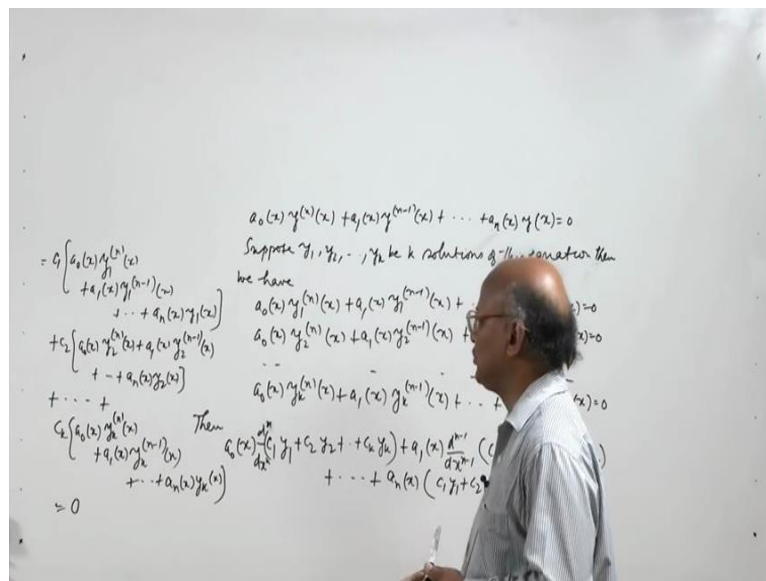 a₀(x) y⁽ⁿ⁾(x) + a₁(x) y⁽ⁿ⁻¹⁾(x) + ··· + aₙ(x) y(x) = 0
Suppose y₁, y₂, ··, yₖ be k solutions of this equation then
we have
a₀(x) y₁⁽ⁿ⁾(x) + a₁(x) y₁⁽ⁿ⁻¹⁾(x) + (x) = 0
a₀(x) y₂⁽ⁿ⁾(x) + a₁(x) y₂⁽ⁿ⁻¹⁾(x) + (x) = 0
·· - - -
a₀(x) yₖ⁽ⁿ⁾(x) + a₁(x) yₖ⁽ⁿ⁻¹⁾(x) + ·· + (x) = 0
Then
a₀(x) dⁿ/dxⁿ (c₁ y₁ + c₂ y₂ + ·· + cₖ yₖ) + a₁(x) dⁿ⁻¹/dxⁿ⁻¹ (c )
+ ··· + aₙ(x) (c₁ y₁ + c₂
= c₁ {a₀(x) y₁⁽ⁿ⁾(x)
+ a₁(x) y₁⁽ⁿ⁻¹⁾(x)
+ ·· + aₙ(x) y₁(x)}
+ c₂ {a₀(x) y₂⁽ⁿ⁾(x) + a₁(x) y₂⁽ⁿ⁻¹⁾(x)
+ -- + aₙ(x) y₂(x)}
+ ··· +
cₖ {a₀(x) yₖ⁽ⁿ⁾(x)
+ a₁(x) yₖ⁽ⁿ⁻¹⁾(x)
+ ·· + aₙ(x) yₖ(x)}
= 0